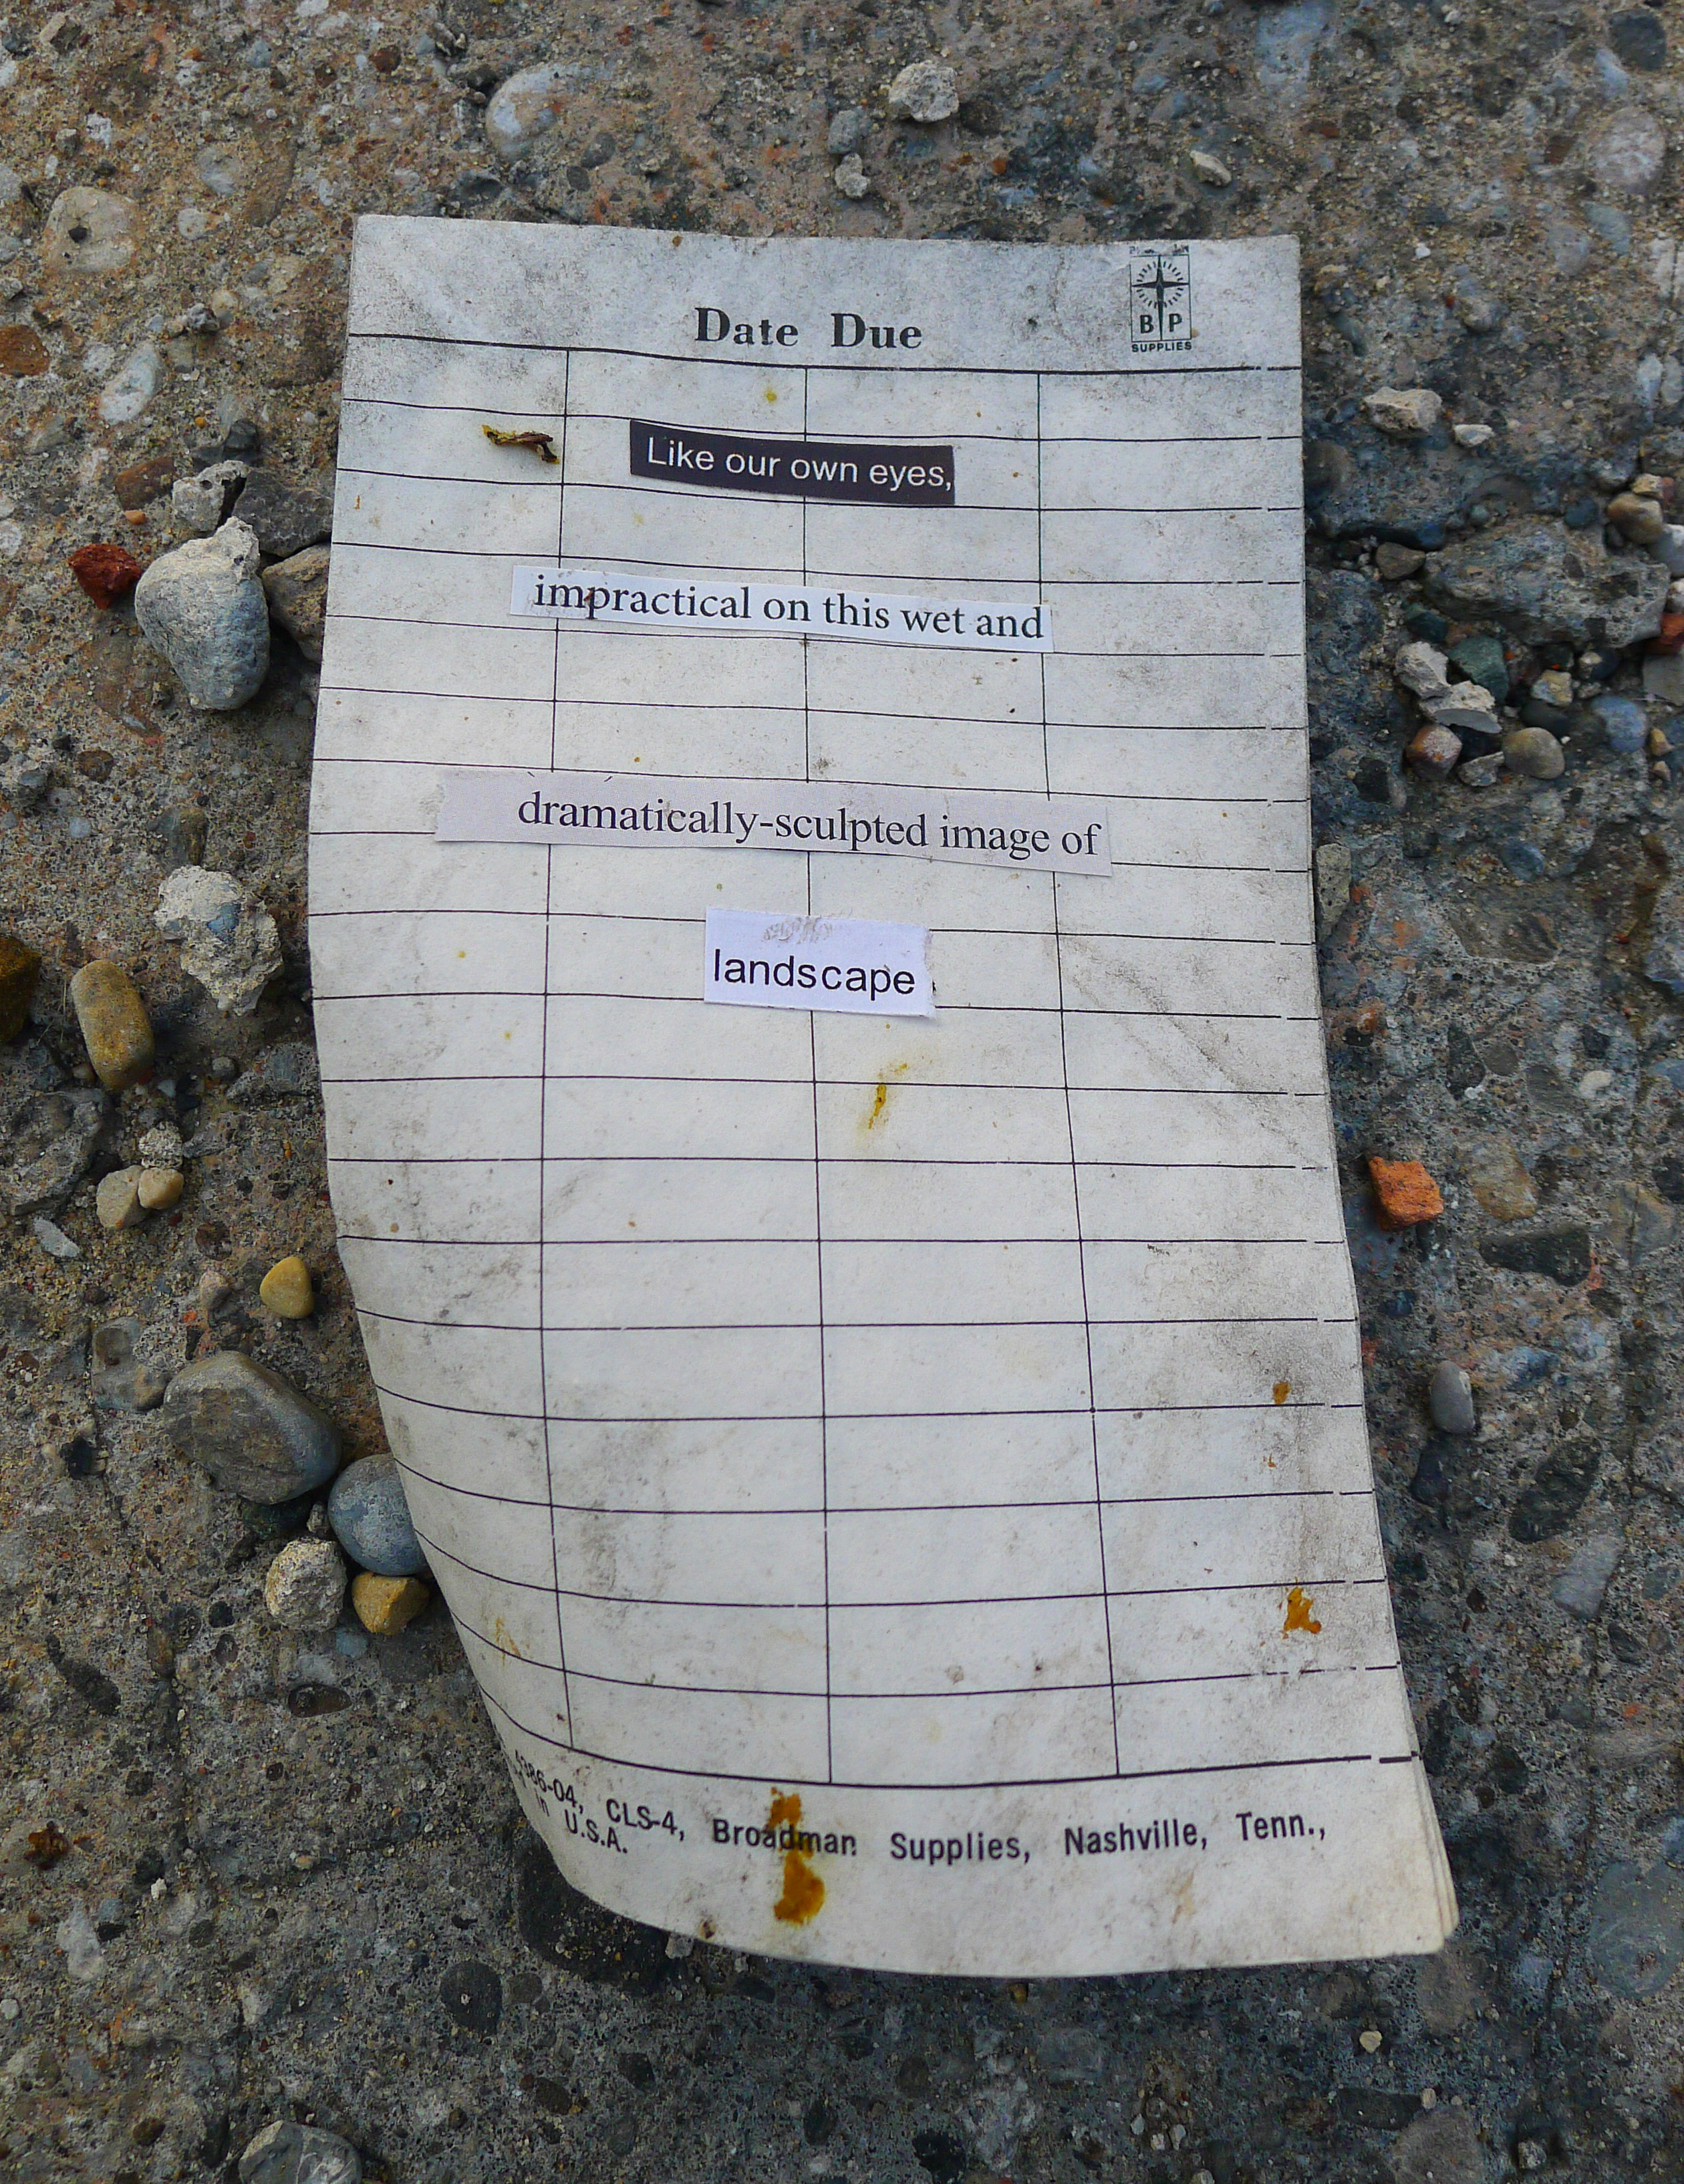 Date Due
B P
SUPPLIES
Like our own eyes,
impractical on this wet and
dramatically-sculpted image of
landscape
386-04, CLS-4, Broadman Supplies, Nashville, Tenn.,
in U.S.A.